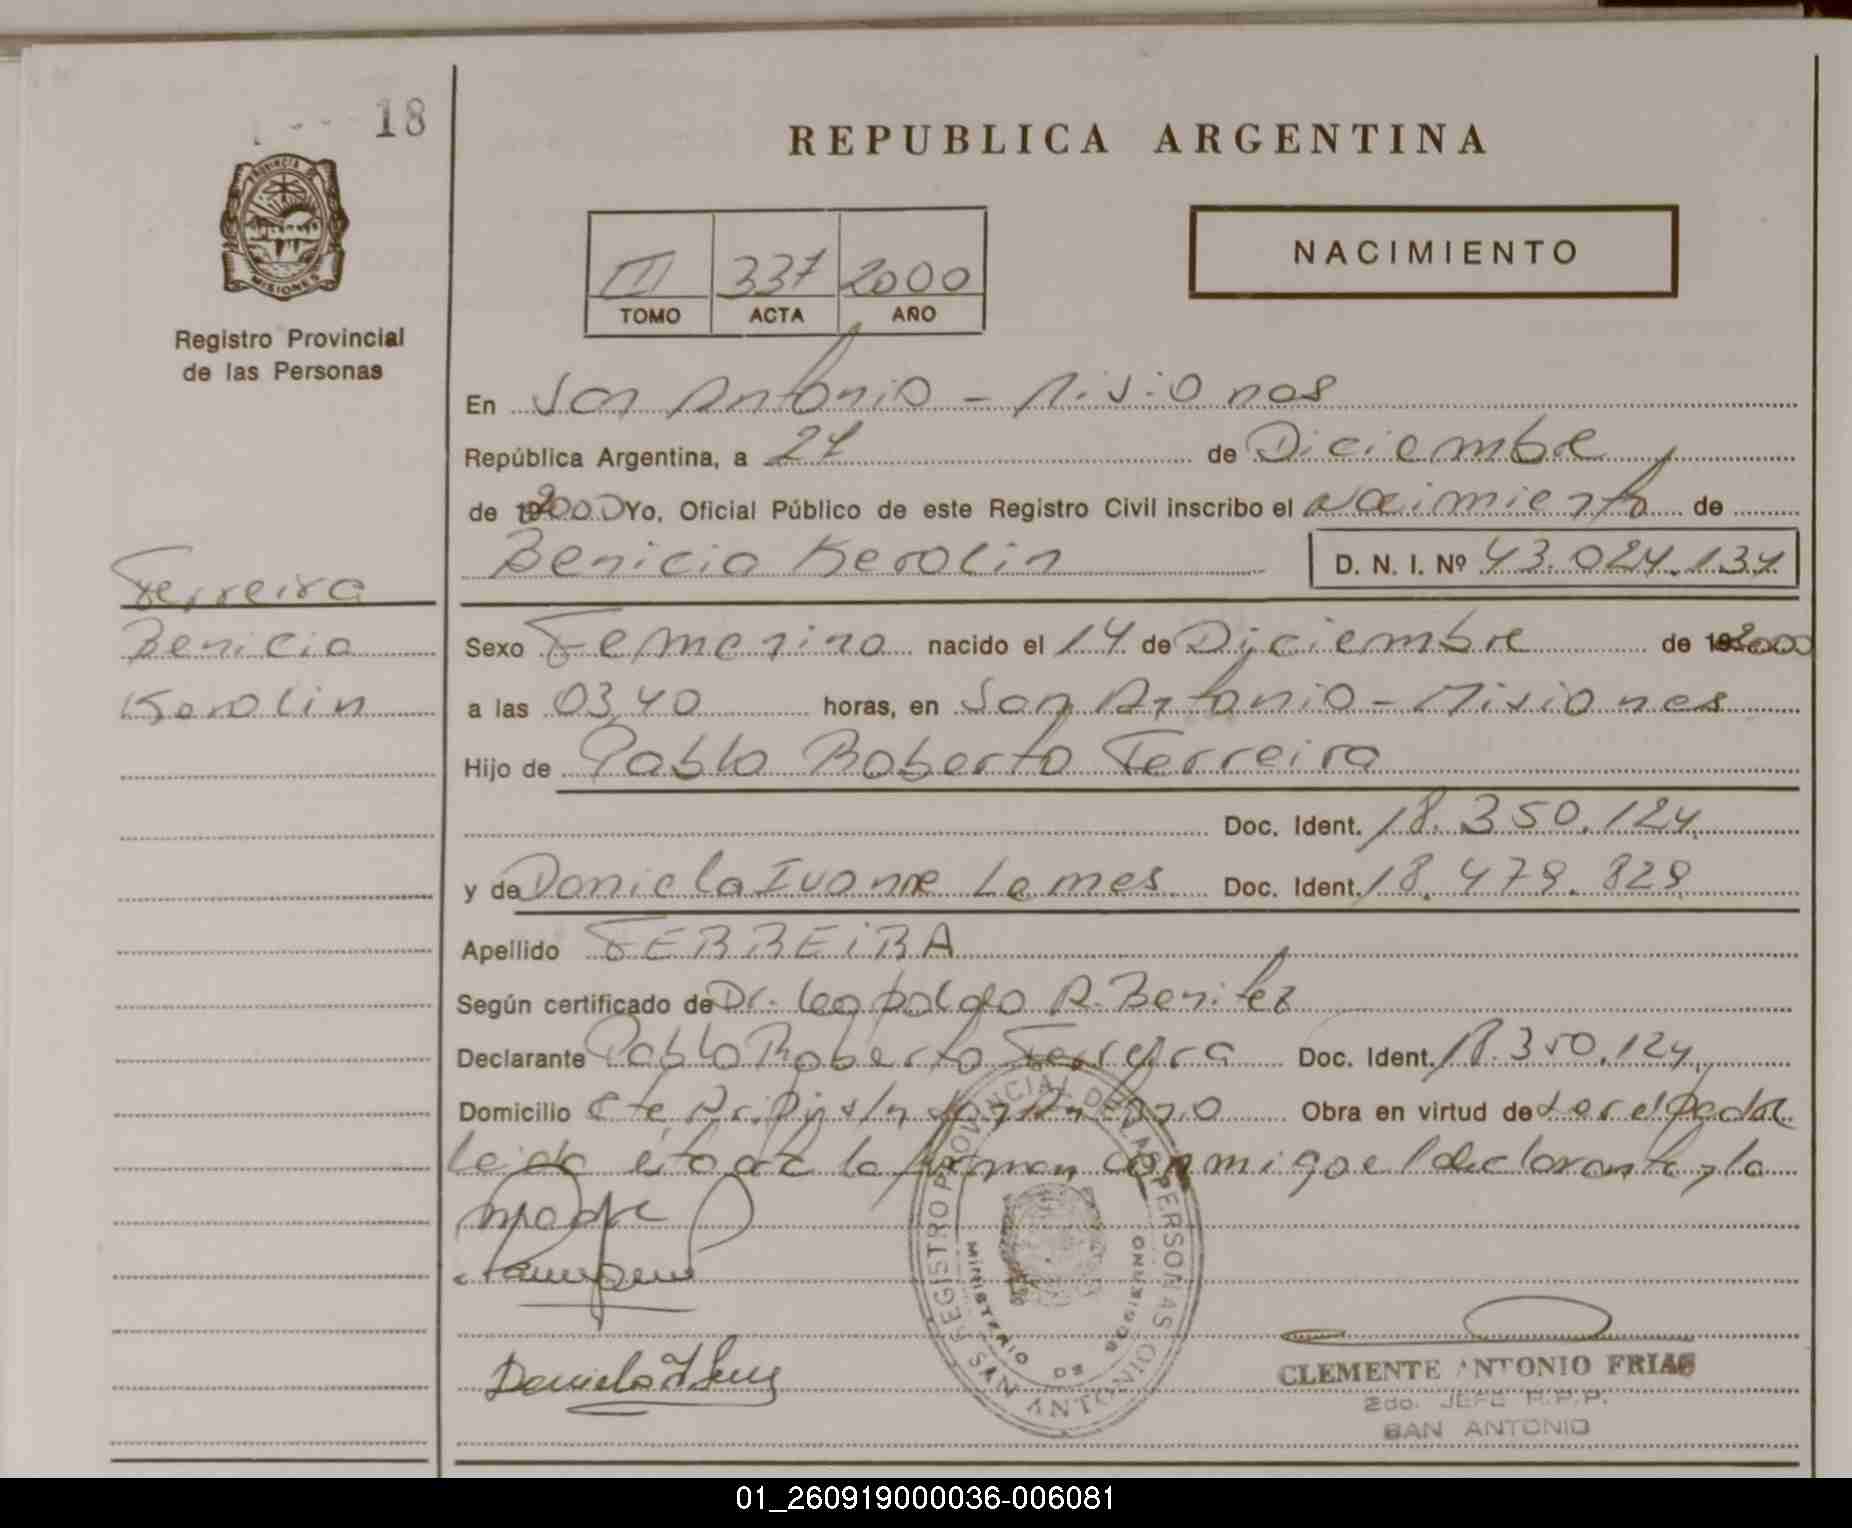 18
PROVINCIA DE
MISIONES
Registro Provincial
de las Personas
REPUBLICA ARGENTINA
NACIMIENTO
III 337 2000
TOMO ACTA AÑO
En San Antonio - Misiones
República Argentina, a 27 de Diciembre
de 2000 Yo, Oficial Público de este Registro Civil inscribo el Nacimiento de
Benicia Kerolin D. N. I. Nº 43.024.134
Ferreira
Benicia
Kerolin
Sexo Femenino nacido el 14 de Diciembre de 2000
a las 03,40 horas, en San Antonio - Misiones
Hijo de Pablo Roberto Ferreira
Doc. Ident. 18.350.124
y de Daniela Ivonne Lemes Doc. Ident. 18.479.829
Apellido FERREiRA
Según certificado de Dr. Leopoldo R. Benitez
Declarante Pablo Roberto Ferreira Doc. Ident. 18.350.124
Domicilio s/n San Antonio Obra en virtud de ser el padre
leida ésta acta la firman conmigo el declarante y la
madre
REGISTRO PROVINCIAL DE LAS PERSONAS
SAN ANTONIO
MINISTERIO DE GOBIERNO
CLEMENTE ANTONIO FRIAS
2do. JEFE R.P.P.
SAN ANTONIO
01_260919000036-006081